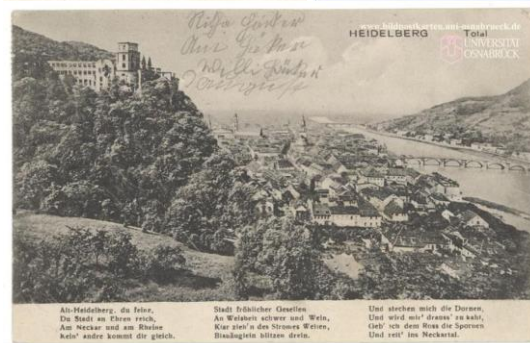 www.bildpostkarten.uni-osnabrueck.de
HEIDELBERG Total
UNIVERSITÄT
OSNABRÜCK
Alt-Heidelberg, du feine,
Du Stadt an Ehren reich,
Am Neckar und am Rheine
Kein' andre kommt dir gleich.
Stadt fröhlicher Gesellen
An Weisheit schwer und Wein,
Klar zieh'n des Stromes Wellen,
Blauäuglein blitzen drein.
Und stechen mich die Dornen,
Und wird mir's drauss' zu kahl,
Geb' ich dem Ross die Spornen
Und reit' ins Neckartal.